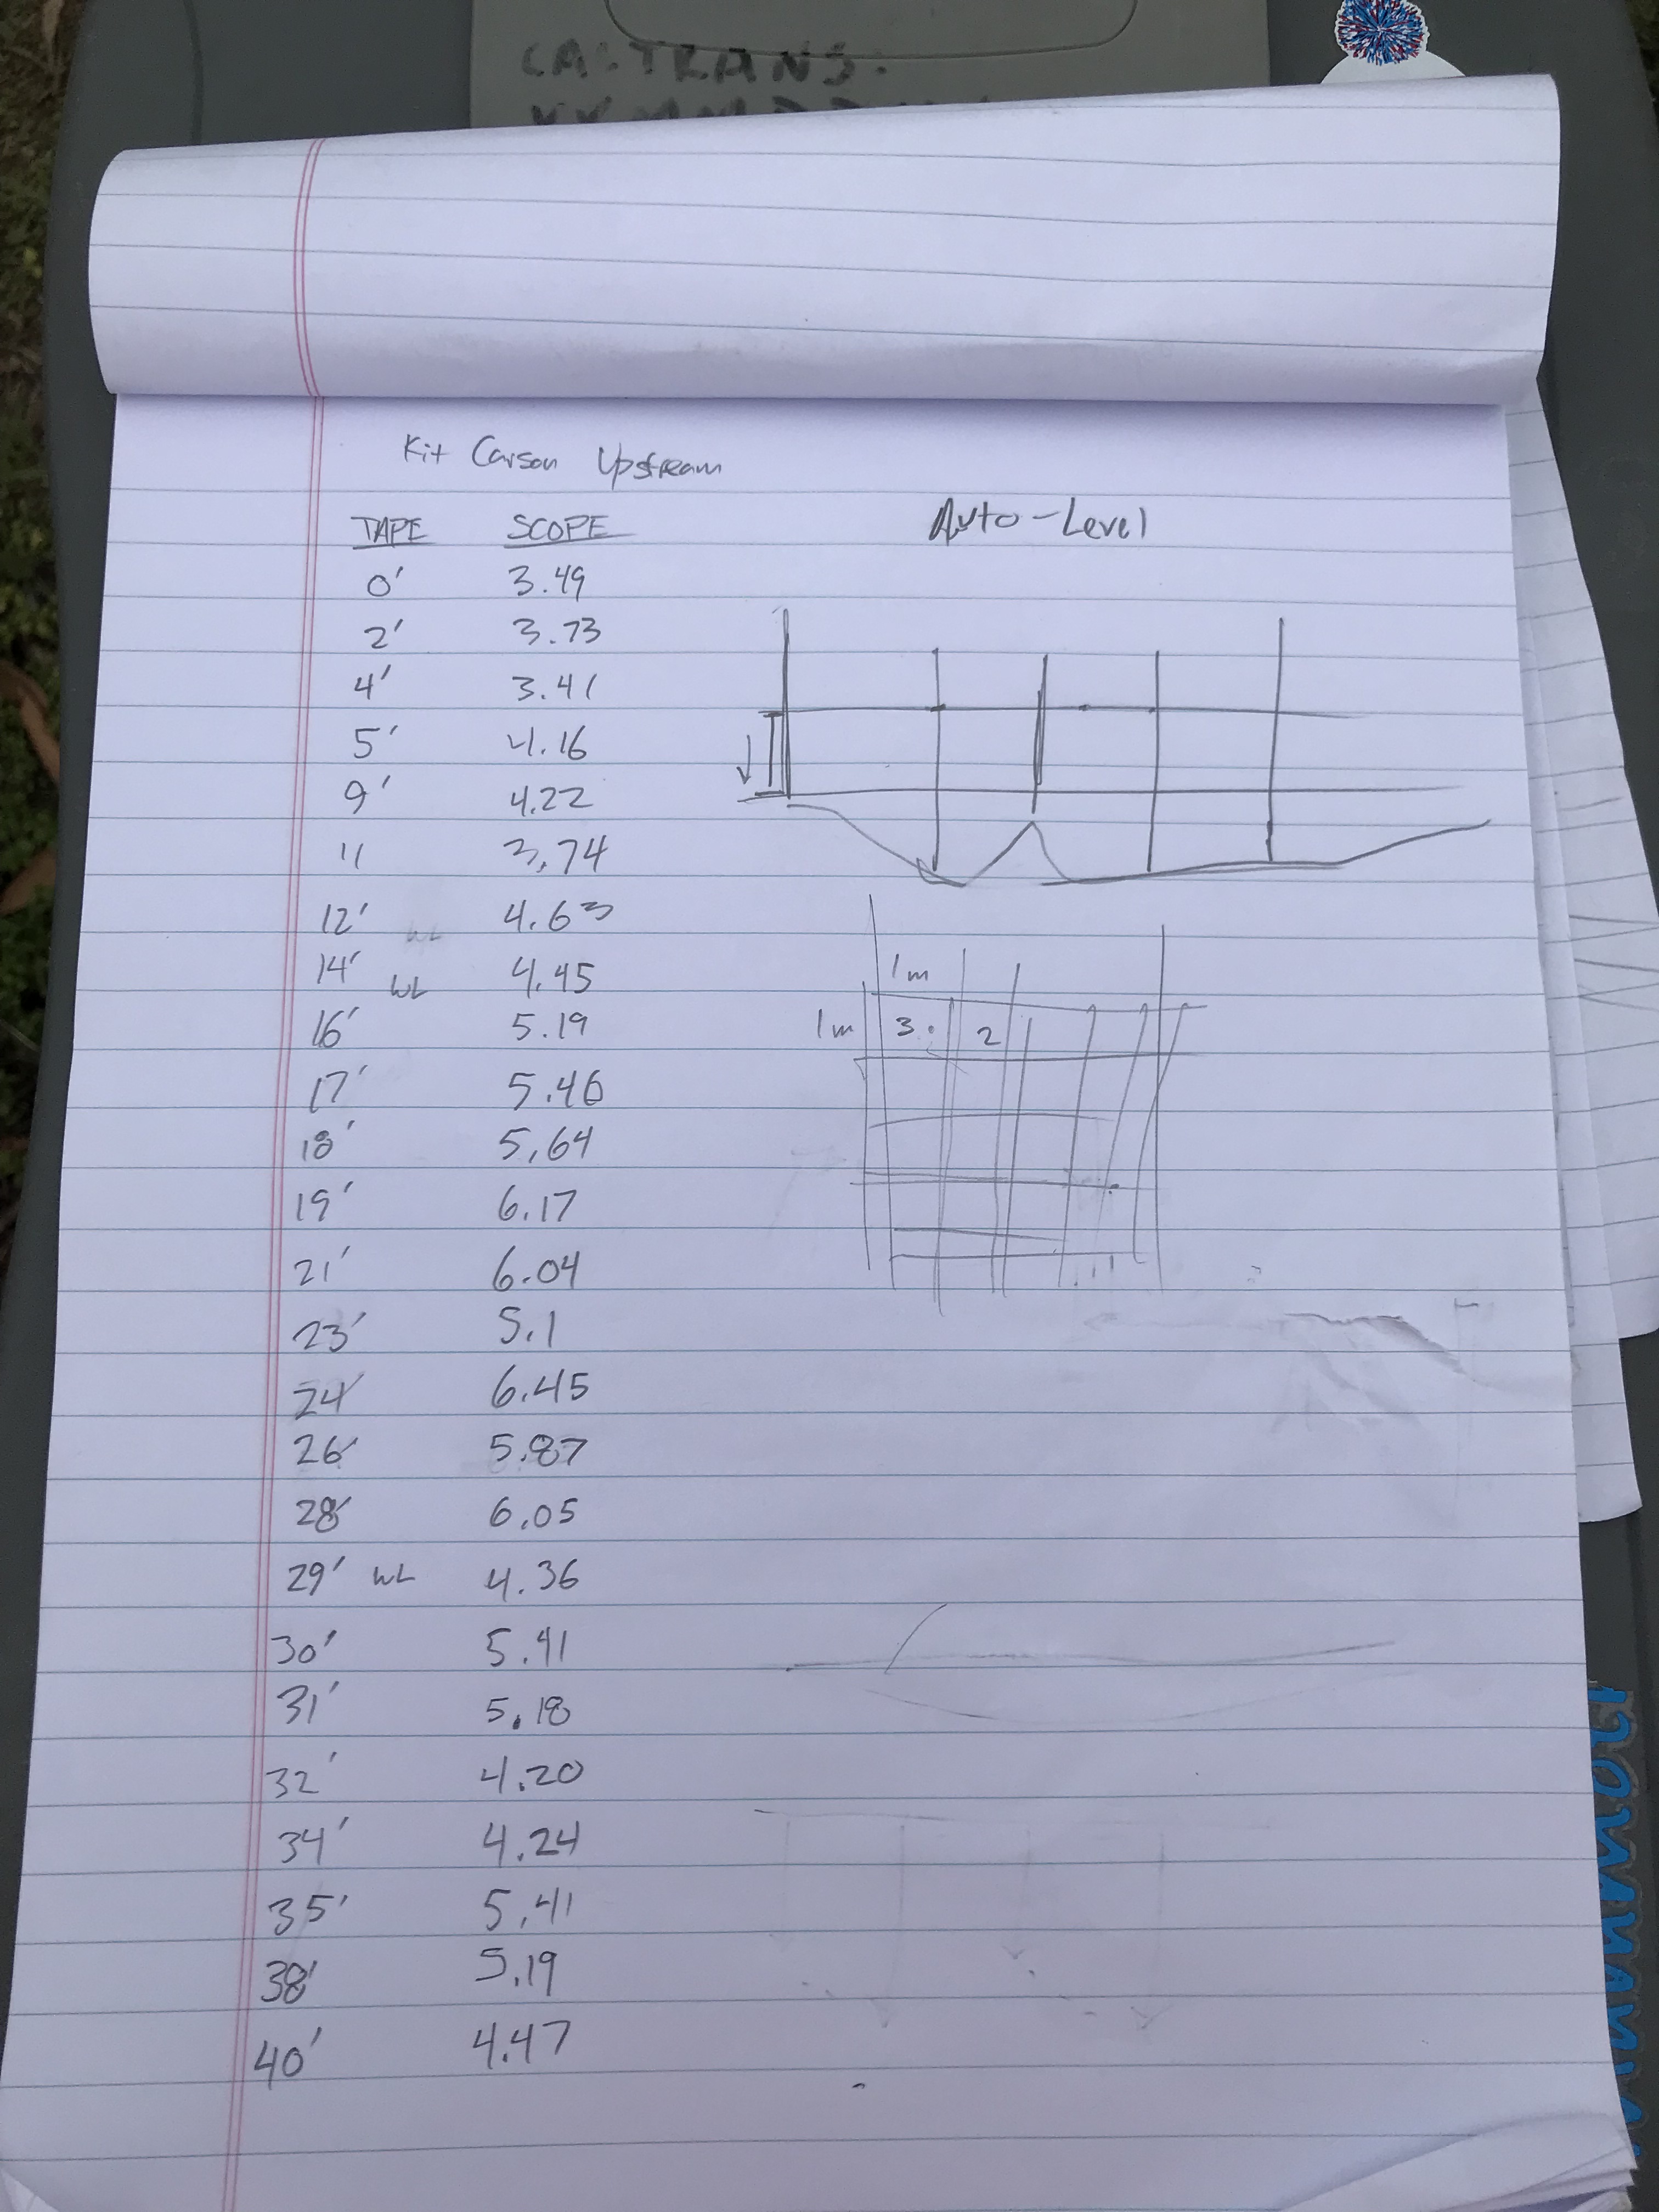 CALTRANS:
Kit Carson Upstream
TAPE SCOPE
Auto-Level
0' 3.49
2' 3.73
4' 3.41
5' 4.16
9' 4.22
11 3.74
12' WL 4.63
14' WL 4.45
16' 5.19
17' 5.46
18' 5.64
19' 6.17
21' 6.04
23' 5.1
24' 6.45
26' 5.87
28' 6.05
29' WL 4.36
30' 5.41
31' 5.18
32' 4.20
34' 4.24
35' 5.41
38' 5.19
40' 4.47
1m
1m 3. 2